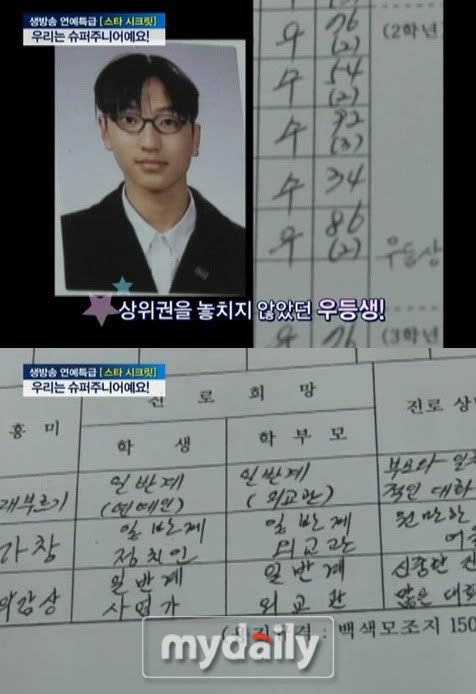 생방송 연예특급 [스타 시크릿]
우리는 슈퍼주니어예요!
우 76 (2)
(2학년)
수 54 (2)
수 92 (3)
수 34
우 86 (2)
우등상
상위권을 놓치지 않았던 우등생!
우 76
(3학년
생방송 연예특급 [스타 시크릿]
우리는 슈퍼주니어예요!
흥 미
진 로 희 망
진로 상
학 생
학 부 모
래부르기
일반계 (연예인)
일반계 (외교관)
부모와 일
적인 대화
가창
일반계 정치인
일반계 외교관
원만한
일반계 사업가
일반계 외교관
신중한 진
많은 대화
: 백색모조지 150
mydaily